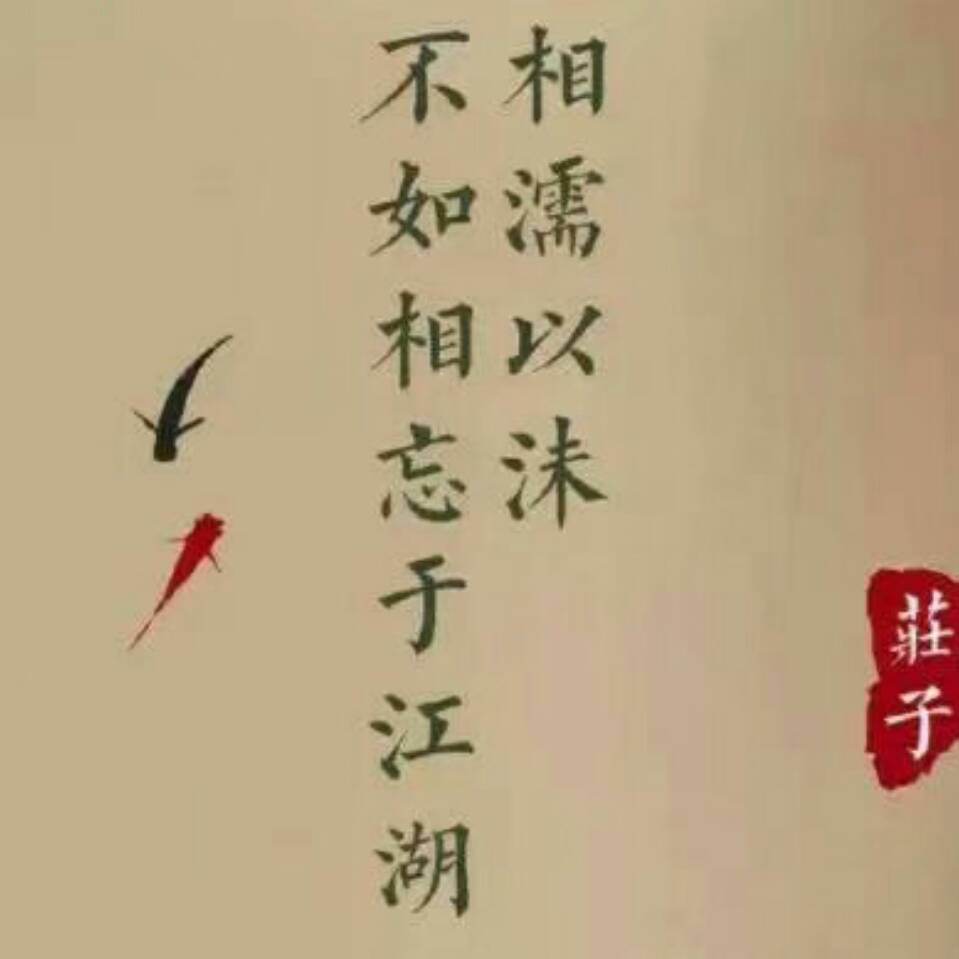 相濡以沫
不如相忘于江湖
莊子